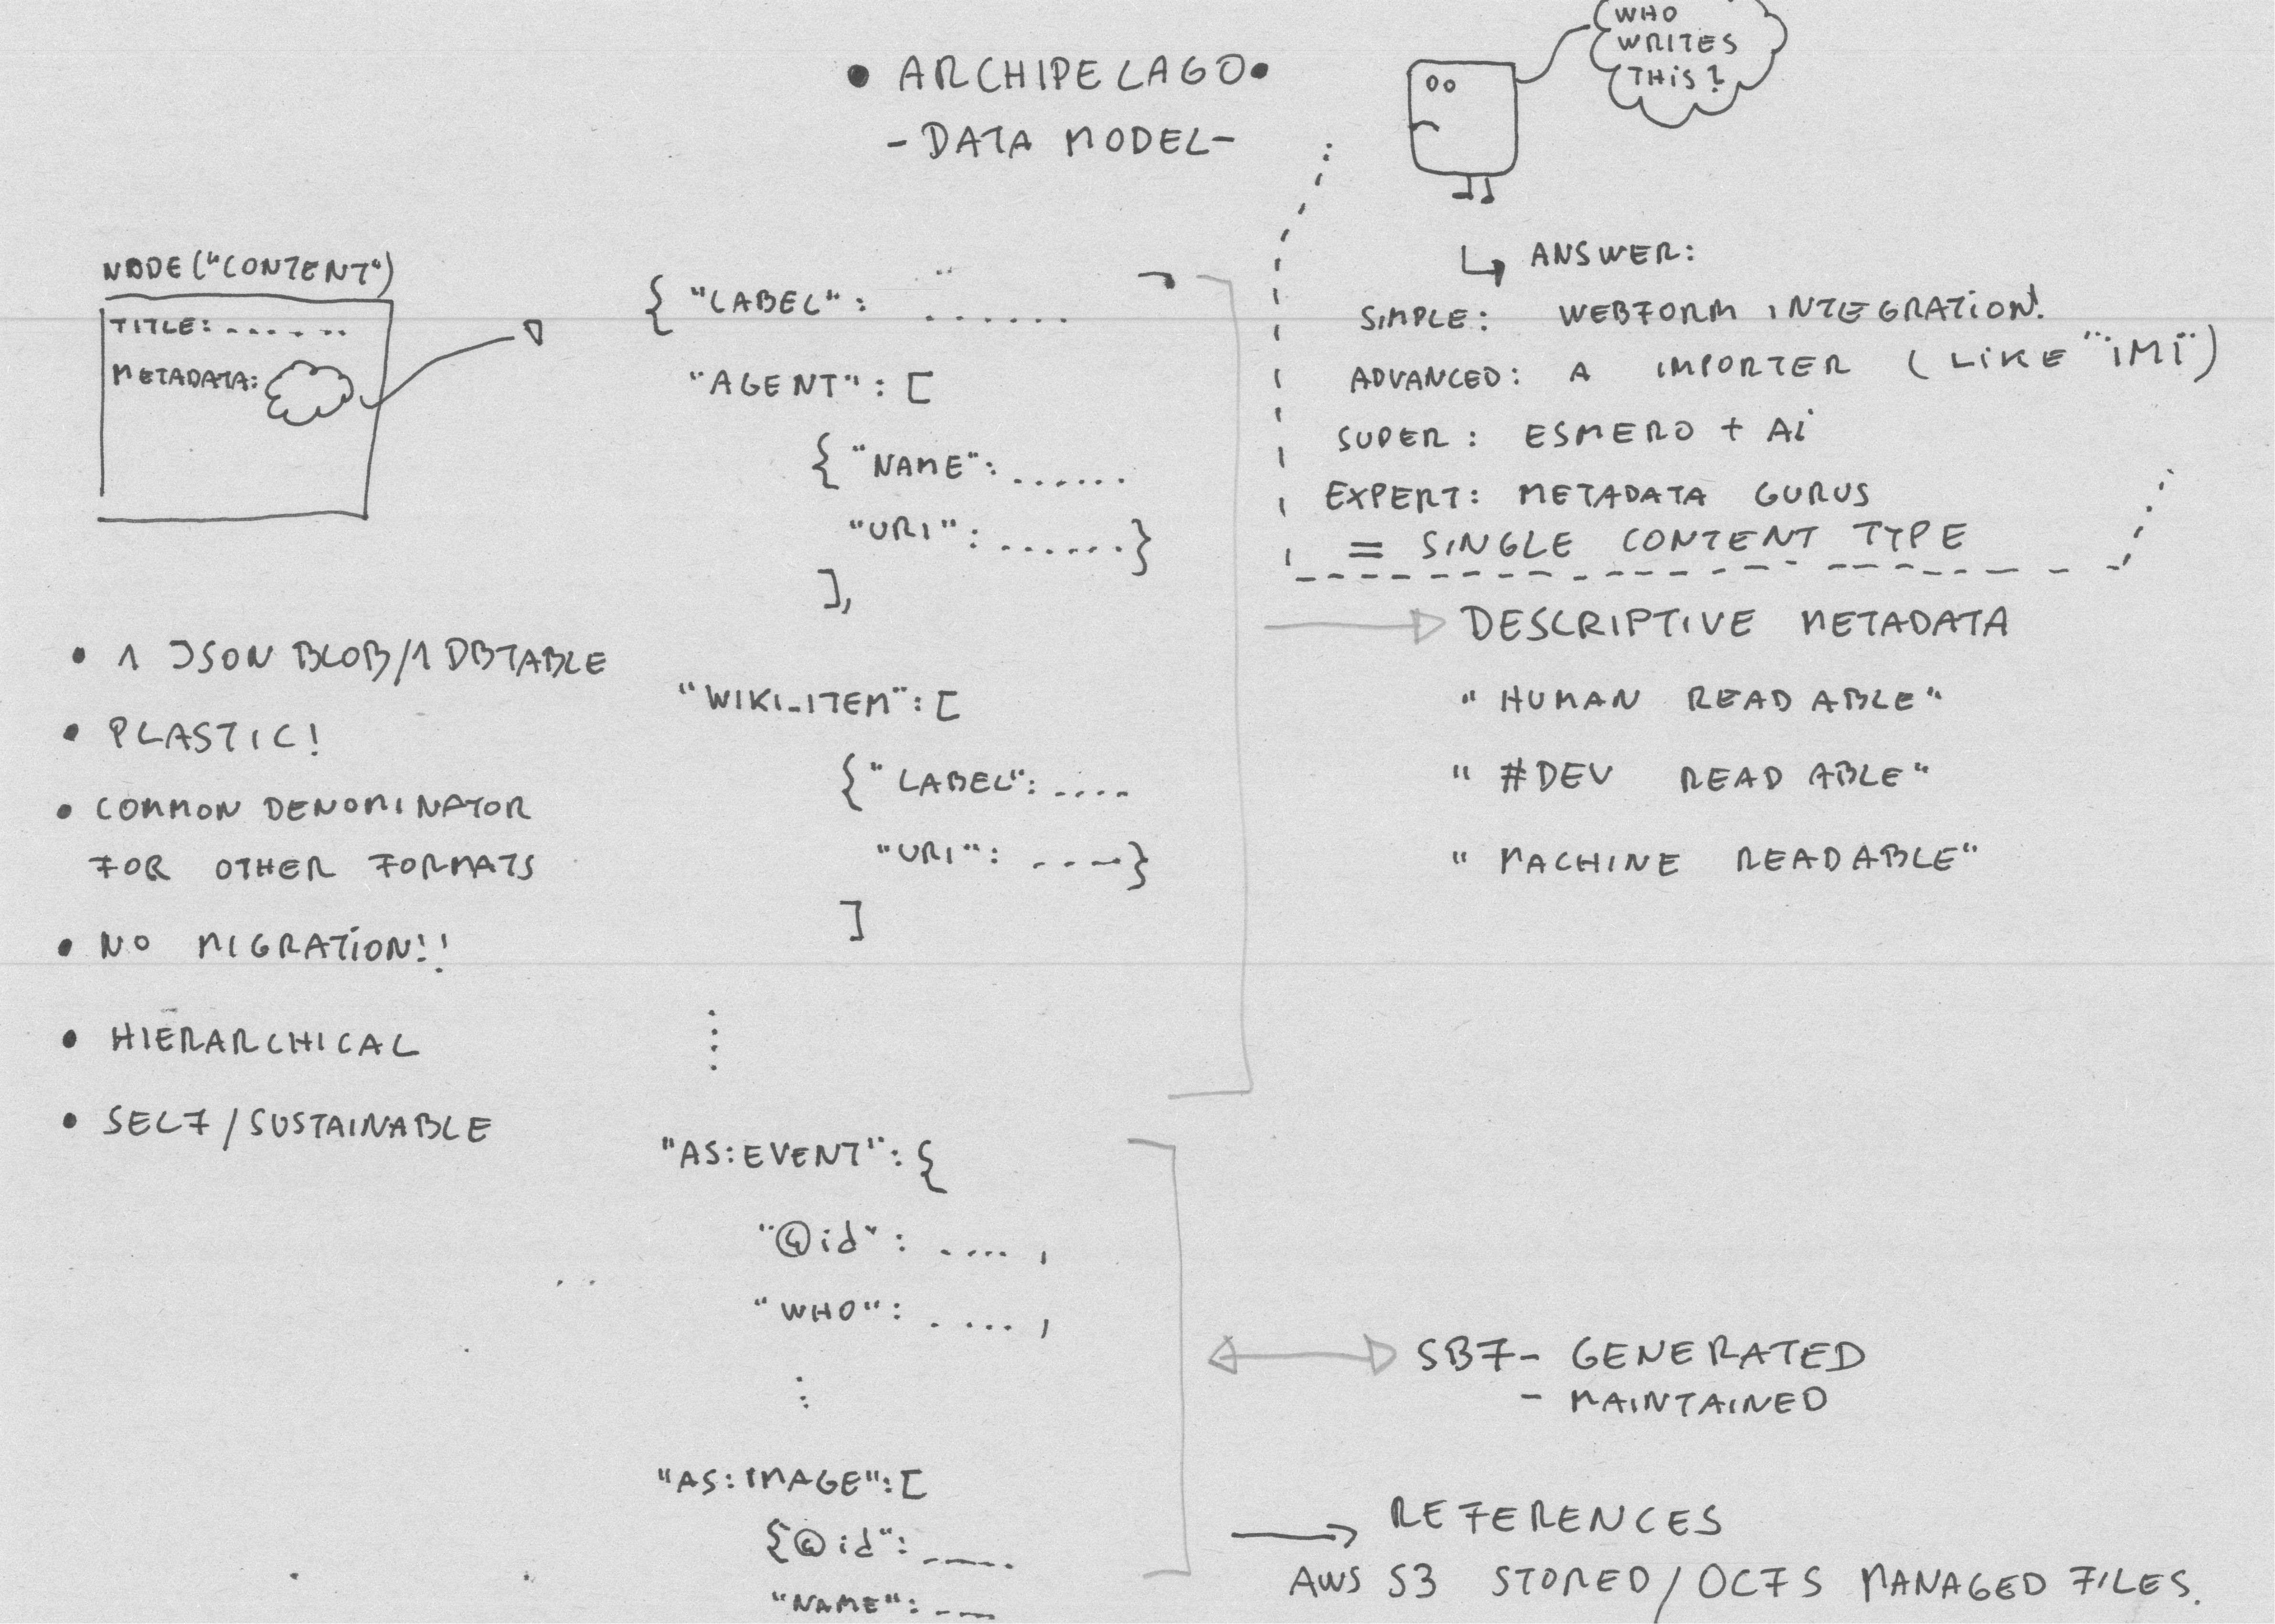 • ARCHIPELAGO •
- DATA MODEL -
WHO
WRITES
THIS?
NODE ("CONTENT")
TITLE: ......
METADATA:
• 1 JSON BLOB/1 DBTABLE
• PLASTIC!
• COMMON DENOMINATOR
FOR OTHER FORMATS
• NO MIGRATION!!
• HIERARCHICAL
• SELF/SUSTAINABLE
{ "LABEL": ......
"AGENT": [
{ "NAME": ......
"URI": ......}
],
"WIKI_ITEM": [
{ "LABEL": ....
"URI": ----}
]
⋮
"AS:EVENT": {
"@id": ....,
"WHO": ....,
⋮
"AS:IMAGE": [
{@id": ____.
"NAME": ---
↳ ANSWER:
SIMPLE: WEBFORM INTEGRATION!
ADVANCED: A IMPORTER (LIKE "IMI")
SUPER: ESMERO + Ai
EXPERT: METADATA GURUS
= SINGLE CONTENT TYPE
DESCRIPTIVE METADATA
"HUMAN READABLE"
"#DEV READABLE"
"MACHINE READABLE"
SBF - GENERATED
- MAINTAINED
REFERENCES
AWS S3 STORED/OCFS MANAGED FILES.